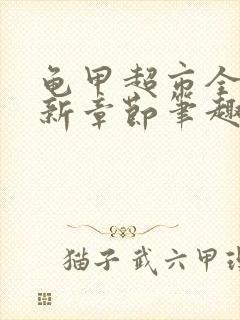 龟甲超市全
新章节笔趣
猫子武六甲